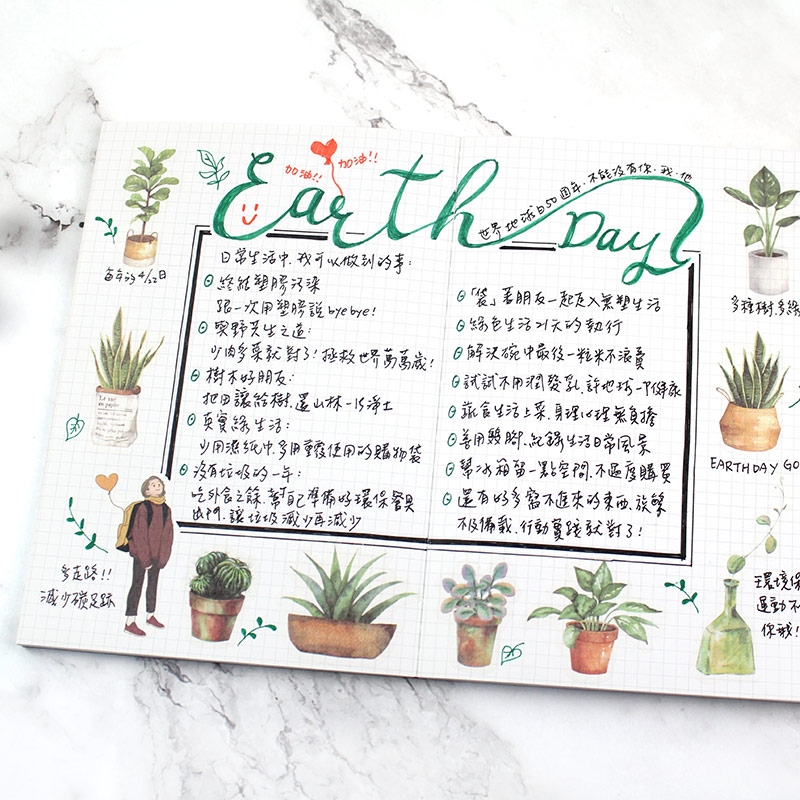 加油!!
加油!!
Earth Day
世界地球日50週年,不能沒有你、我、他
每年的4/22日
日常生活中,我可以做到的事:
終結塑膠污染
跟一次用塑膠說byebye!
與野共生之道:
少肉多菜就對了!拯救世界萬萬歲!
樹木好朋友:
把田讓給樹,還山林一片淨土
真實綠生活:
少用濕紙巾,多用重覆使用的購物袋
沒有垃圾的一年:
吃外食之餘,幫自己準備好環保餐具
出門,讓垃圾減少再減少
「袋」著朋友一起走入無塑生活
綠色生活21天的執行
解決碗中最後一粒米不浪費
試試不用潤髮乳,許地球一個健康
蔬食生活上菜,身理心理無負擔
善用雙腳,紀錄生活日常風景
幫冰箱留一點空間,不過度購買
還有好多塞不進來的東西,族繁
不及備載,行動實踐就對了!
多種樹.多綠
EARTHDAY GO
多走路!!
減少碳足跡
環境保
運動不
你我!